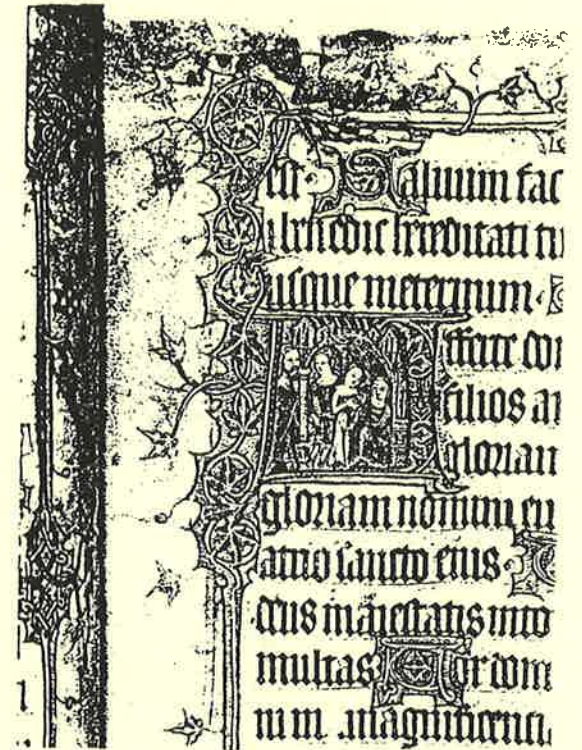 est Saluum fac
benedic hereditati tu
usque ineternum
Afferte do
filios ar
gloriam
gloriam nomini ei
atrio sancto eius
deus maiestatis into
multas Vox dom
ni in magnificenci